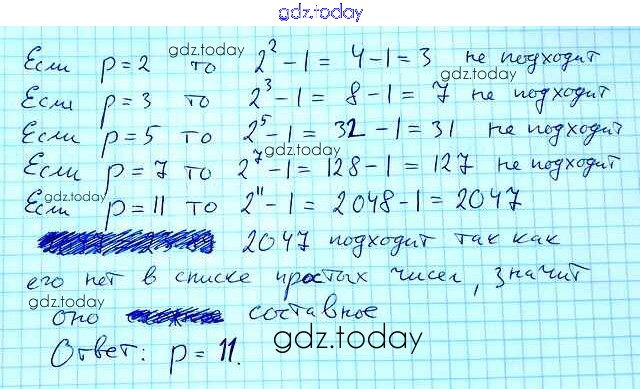 gdz.today
Если p = 2 то 2² - 1 = 4 - 1 = 3 не подходит
gdz.today
gdz.today
Если p = 3 то 2³ - 1 = 8 - 1 = 7 не подходит
Если p = 5 то 2⁵ - 1 = 32 - 1 = 31 не подходит
gdz.today
Если p = 7 то 2⁷ - 1 = 128 - 1 = 127 не подходит
gdz.today
Если p = 11 то 2¹¹ - 1 = 2048 - 1 = 2047
2047 подходит так как
его нет в списке простых чисел, значит
gdz.today
оно составное
gdz.today
Ответ: p = 11.